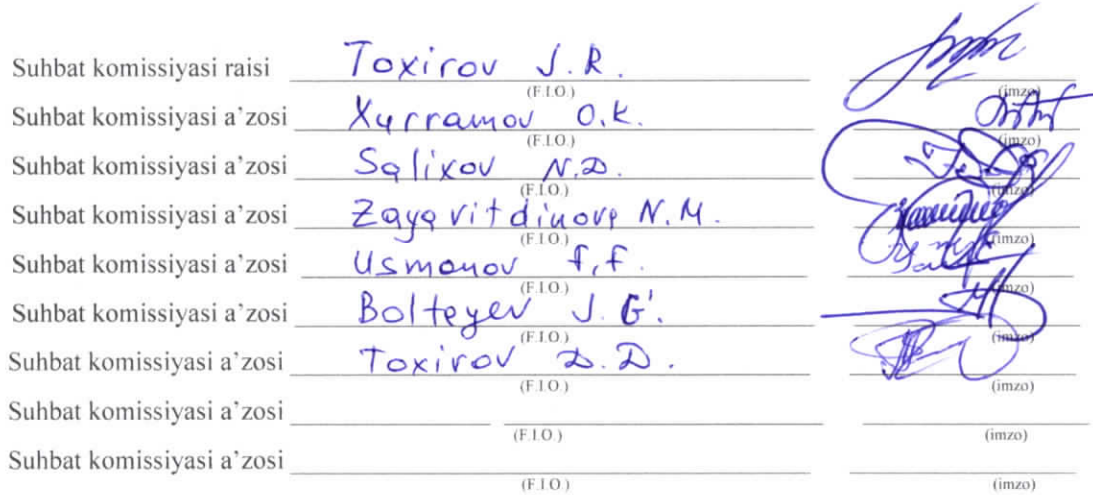 Suhbat komissiyasi raisi Toxirov J.R.
(F.I.O.) (imzo)
Suhbat komissiyasi a’zosi Xurramov O.K.
(F.I.O.) (imzo)
Suhbat komissiyasi a’zosi Salixov N.D.
(F.I.O.) (imzo)
Suhbat komissiyasi a’zosi Zayavitdinova N.M.
(F.I.O.) (imzo)
Suhbat komissiyasi a’zosi Usmonov F.F.
(F.I.O.) (imzo)
Suhbat komissiyasi a’zosi Bolteyev J.G'.
(F.I.O.) (imzo)
Suhbat komissiyasi a’zosi Toxirov D.D.
(F.I.O.) (imzo)
Suhbat komissiyasi a’zosi
(F.I.O.) (imzo)
Suhbat komissiyasi a’zosi
(F.I.O.) (imzo)